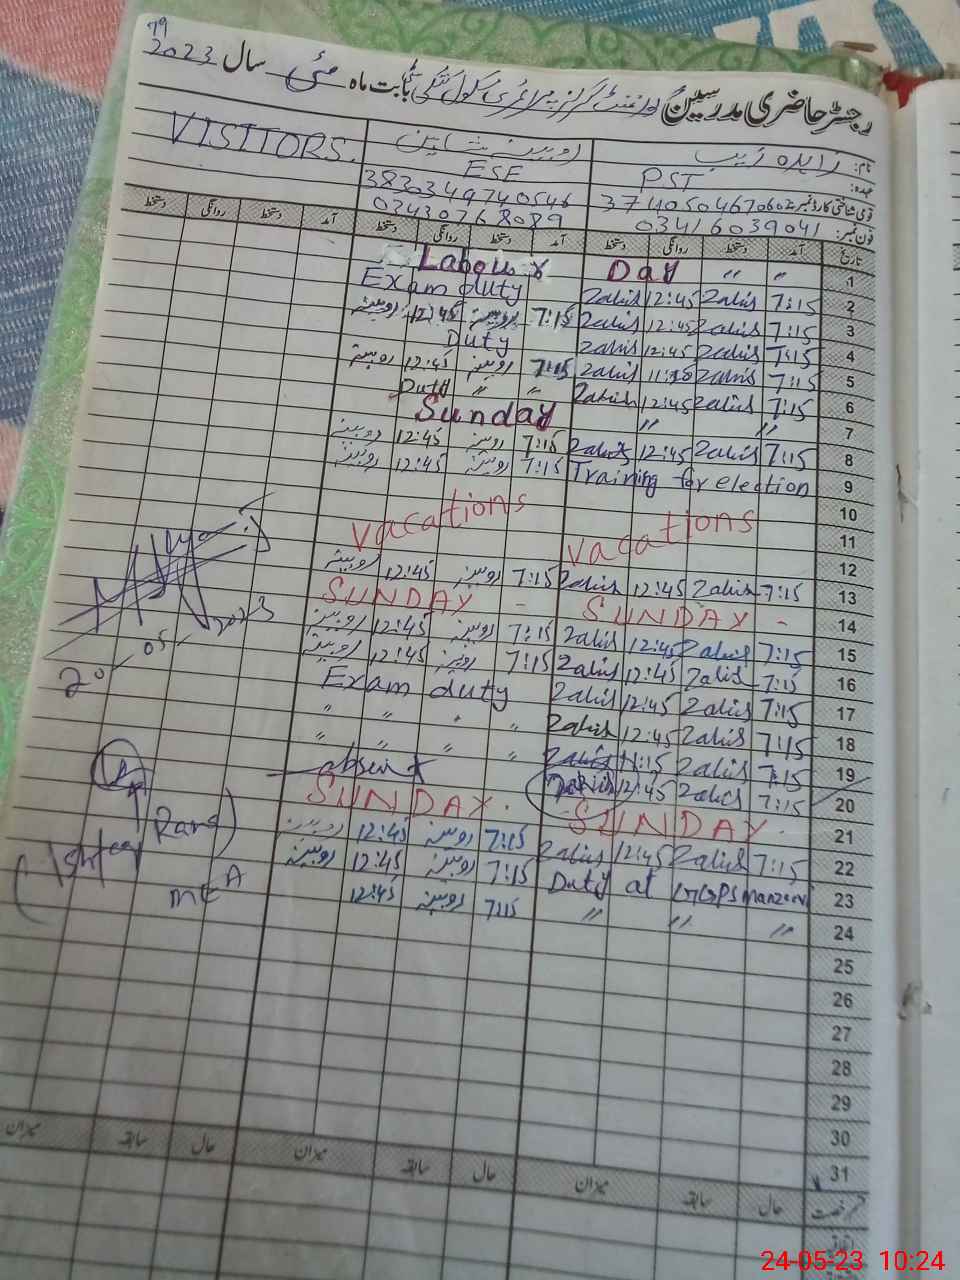 79
رجسٹر حاضری مدرسین گورنمنٹ گرلز پرائمری سکول بابت ماہ مئی سال 2023
نام: زاہدہ زیب روبینہ شاہین VISITORS.
عہدہ: PST ESE
قومی شناختی کارڈ نمبر 38303497420546
فون نمبر: 03416039041 03430768089
تاریخ آمد دستخط روانگی دستخط آمد دستخط روانگی دستخط آمد دستخط روانگی دستخط
1 Labour Day " "
2 7:15 Zahid 12:45 Zahid Exam duty
3 7:15 Zahid 12:45 Zahid 7:15 روبینہ 12:45 روبینہ
4 7:15 Zahid 12:45 Zahid Duty
5 7:15 Zahid Zahid 7:15 روبینہ 12:45 روبینہ
6 7:15 Zahid 12:45 Zahid " " Duty
7 " " Sunday
8 7:15 Zahid 12:45 Zahid 7:15 روبینہ 12:45 روبینہ
9 Training for election 7:15 روبینہ 12:45 روبینہ
10
11 vacations vacations
12
13 7:15 Zahid 12:45 Zahid 7:15 روبینہ 12:45 روبینہ
14 SUNDAY - SUNDAY -
15 7:15 Zahid 12:45 Zahid 7:15 روبینہ 12:45 روبینہ
16 7:15 Zahid 12:45 Zahid 7:15 روبینہ 12:45 روبینہ
17 7:15 Zahid 12:45 Zahid Exam duty
18 7:15 Zahid 12:45 Zahid " " " "
19 7:15 Zahid 11:15 Zahid " " " "
20 7:15 Zahid 12:45 Zahid absent
21 SUNDAY. SUNDAY.
22 7:15 Zahid 12:45 Zahid 7:15 روبینہ 12:45 روبینہ
23 Duty at GGPS manzoor 7:15 روبینہ 12:45 روبینہ
24 " " " 7:15 روبینہ 12:45
25
26
27
28
29
30
31
20-05-2023
(Ishfaq Rana)
MEA
حال سابقہ میزان حال سابقہ میزان حال سابقہ میزان
24-05-23 10:24